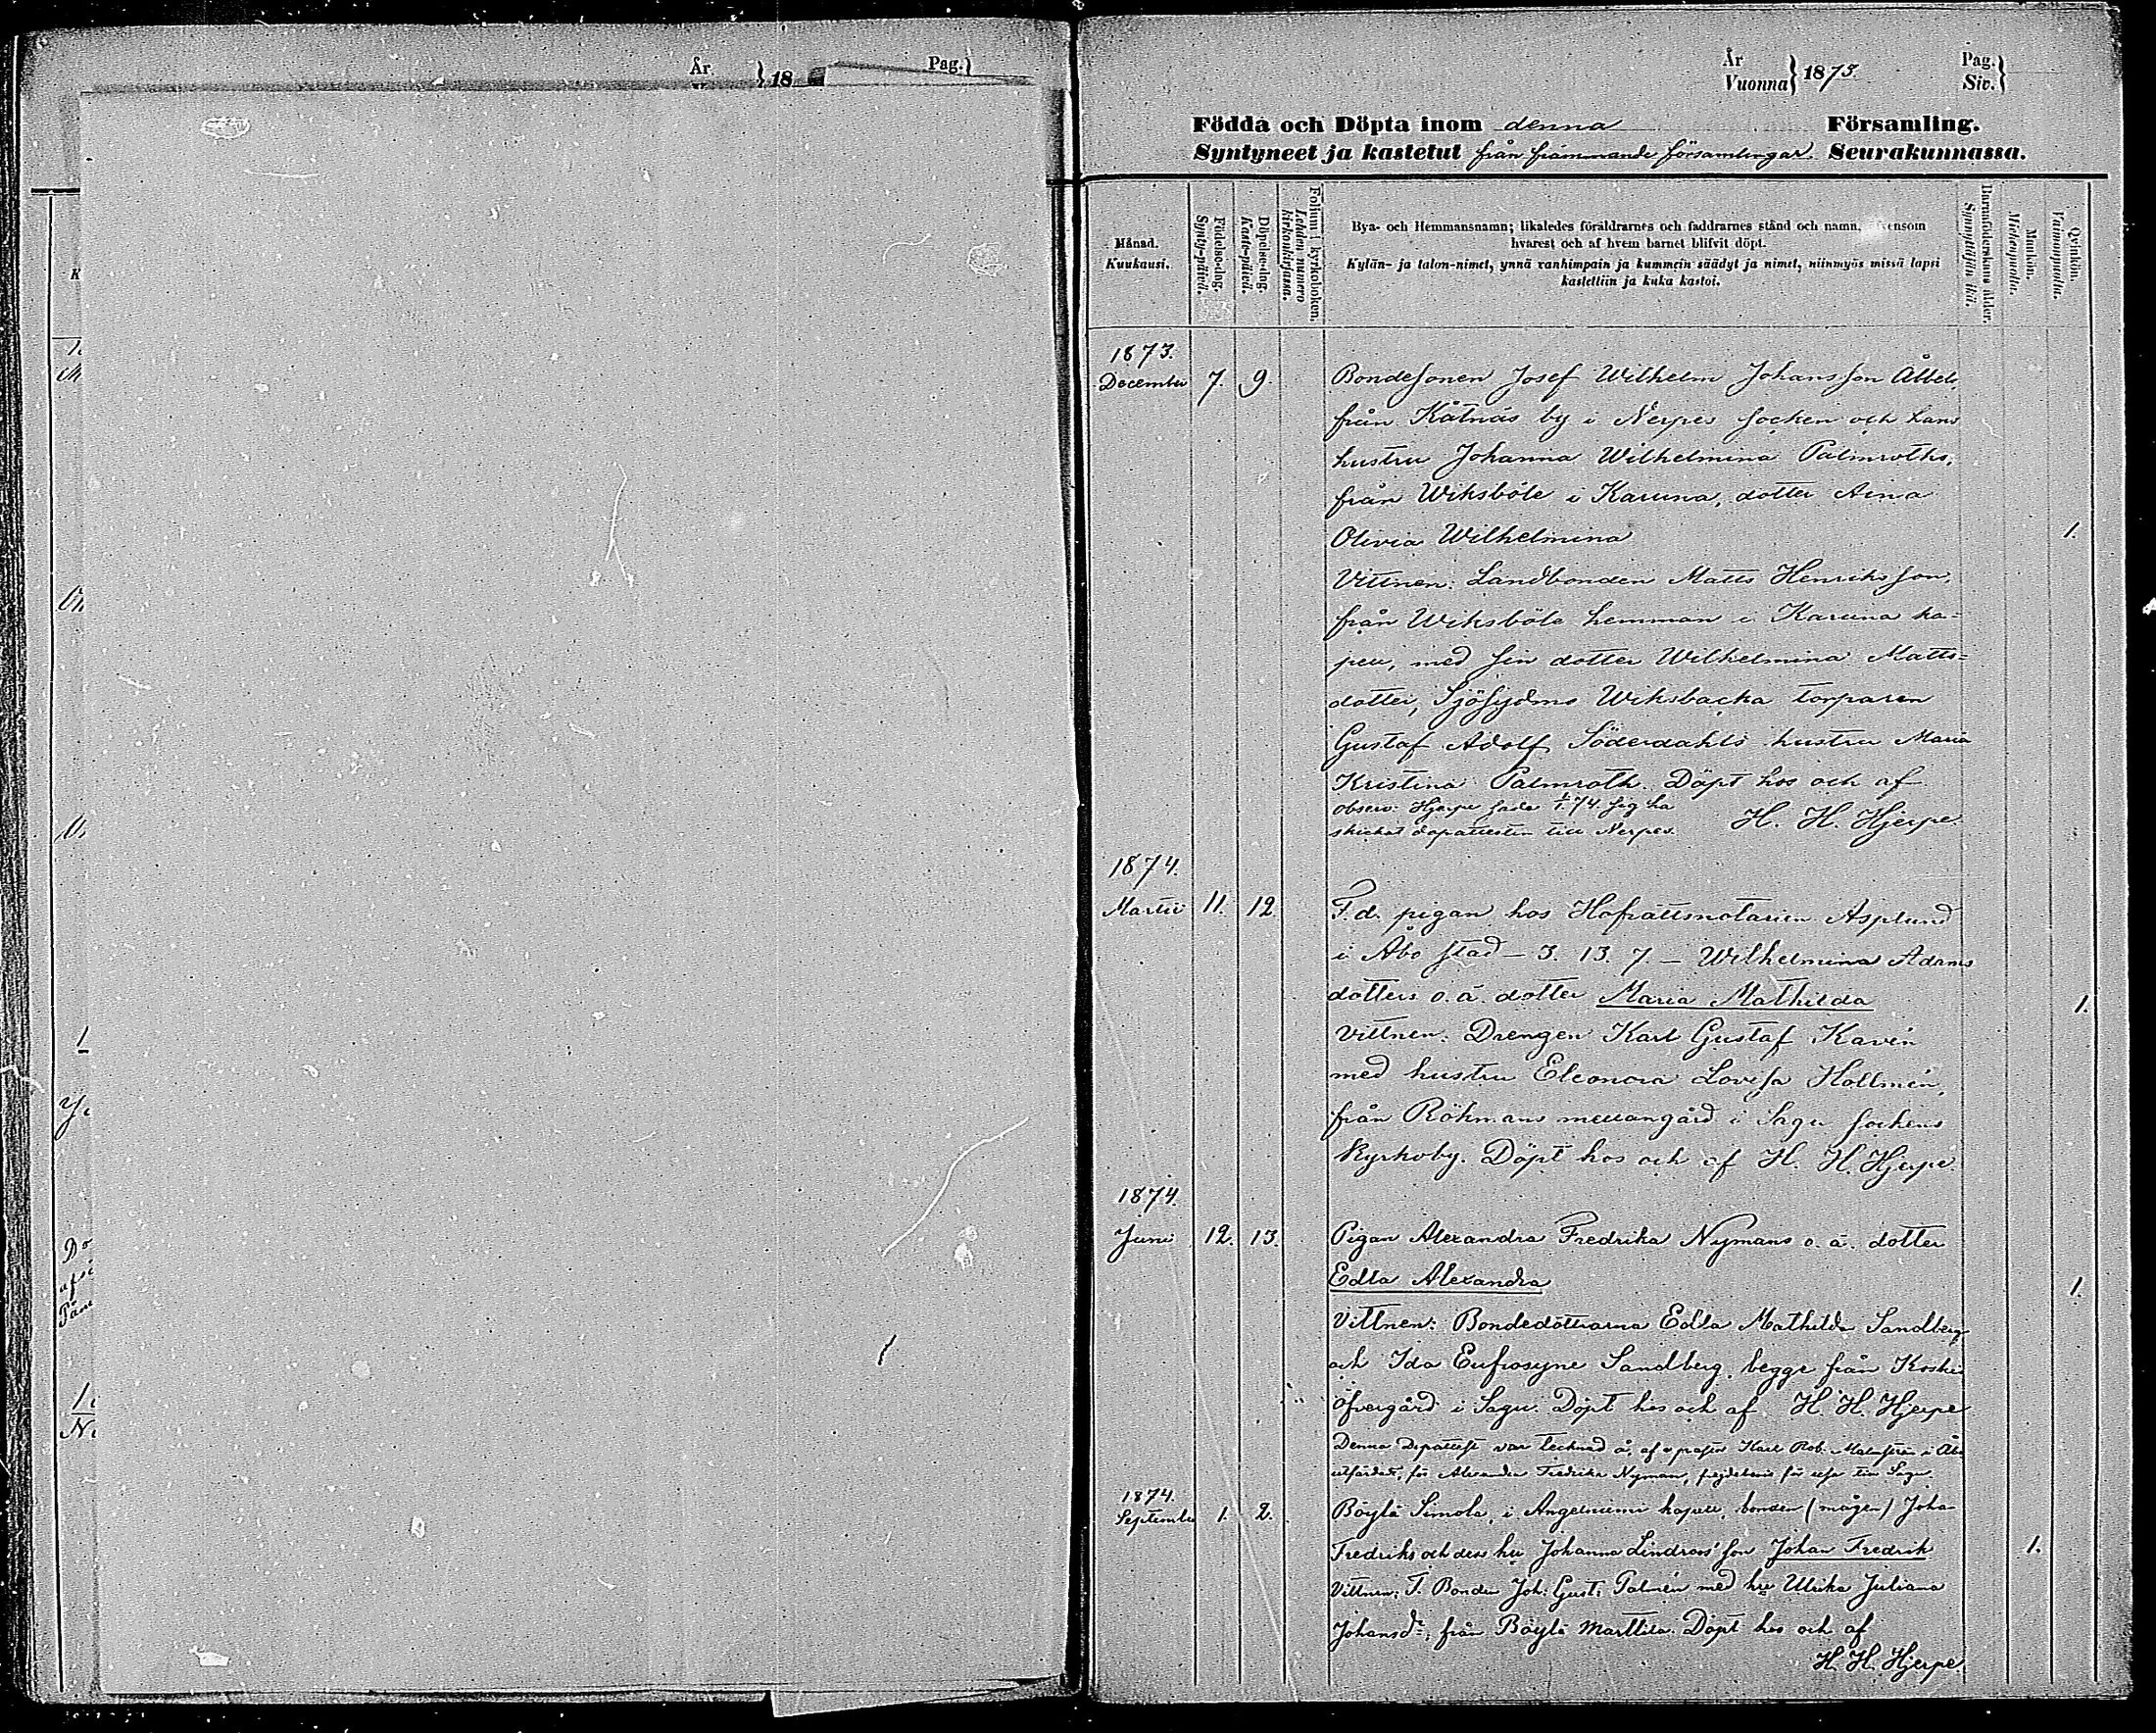 År } 18
Pag. }
År
Vuonna } 1873.
Pag.
Siv. }
Födda och Döpta inom denna Församling.
Syntyneet ja kastetut från främmande församlingar. Seurakunnassa.
Månad.
Kuukausi.
Födelse-dag.
Syntymä-päivä.
Döpelse-dag.
Kaste-päivä.
Folium i kyrkoboken.
Lehden numero kirkonkirjassa.
Bya- och Hemmansnamn; likaledes föräldrarnes och faddrarnes stånd och namn, äfvensom
hvarest och af hvem barnet blifvit döpt.
Kylän- ja talon-nimet, ynnä vanhimpain ja kummein säädyt ja nimet, niinmyös missä lapsi
kastettiin ja kuka kastoi.
Barnaföderskans ålder.
Synnyttäjän ikä.
Mankön.
Miehenpuolia.
Qvinkön.
Vaimonpuolia.
1873.
December 7. 9. Bondesonen Josef Wilhelm Johansson Åbbels,
från Kåtnäs by i Nerpes socken och hans
hustru Johanna Wilhelmina Palmroths,
från Wiksböle i Karuna, dotter Aina
Olivia Wilhelmina 1.
Vittnen: Landbonden Matts Henriksson,
från Wiksböle hemman i Karuna ka-
pell, med sin dotter Wilhelmina Matts-
dotter, Wiksbacka torparen
Gustaf Adolf Söderdahls hustru Maria
Kristina Palmroth. Döpt hos och af
observ: Hjerpe sade 1/1.74 sig ha
skickat dopattesten till Nerpes. H. H. Hjerpe.
1874.
Martii 11. 12 F.d. pigan hos Hofrättsnotarien Asplund
i Åbo stad – 3. 13. 7 – Wilhelmina Adams
dotters o.ä. dotter Maria Mathilda 1.
Vittnen: Drengen Karl Gustaf Kavén
med hustru Eleonora Lovisa Hollmén,
från Röhmans mellangård i Sagu sockens
Kyrkoby. Döpt hos och af H. H. Hjerpe
1874.
Juni 12. 13. Pigan Alexandra Fredrika Nymans o.ä. dotter
Edla Alexandra 1.
Vittnen: Bondedöttrarna Edla Mathilda Sandberg
och Ida Eufrosyne Sandberg, begge från Koski
Öfvergård i Sagu. Döpt hos och af H. H. Hjerpe
Denna Dopattest var tecknad å, af v pastor Karl Rob. Malmström i Åbo
utfärdat, för Alexandra Fredrika Nyman, frejdebevis för resa till Sagu.
1874.
September 1. 2. Böylä Simola, i Angelniemi kapell, bonden (mågen) Joha
Fredriks och dess hu Johanna Lindroos' son Johan Fredrik 1.
Vittnen: F. Bonden Joh. Gust. Palmén med hu Ulrika Juliana
Johansdr, från Böylä Marttila. Döpt hos och af
H. H. Hjerpe.